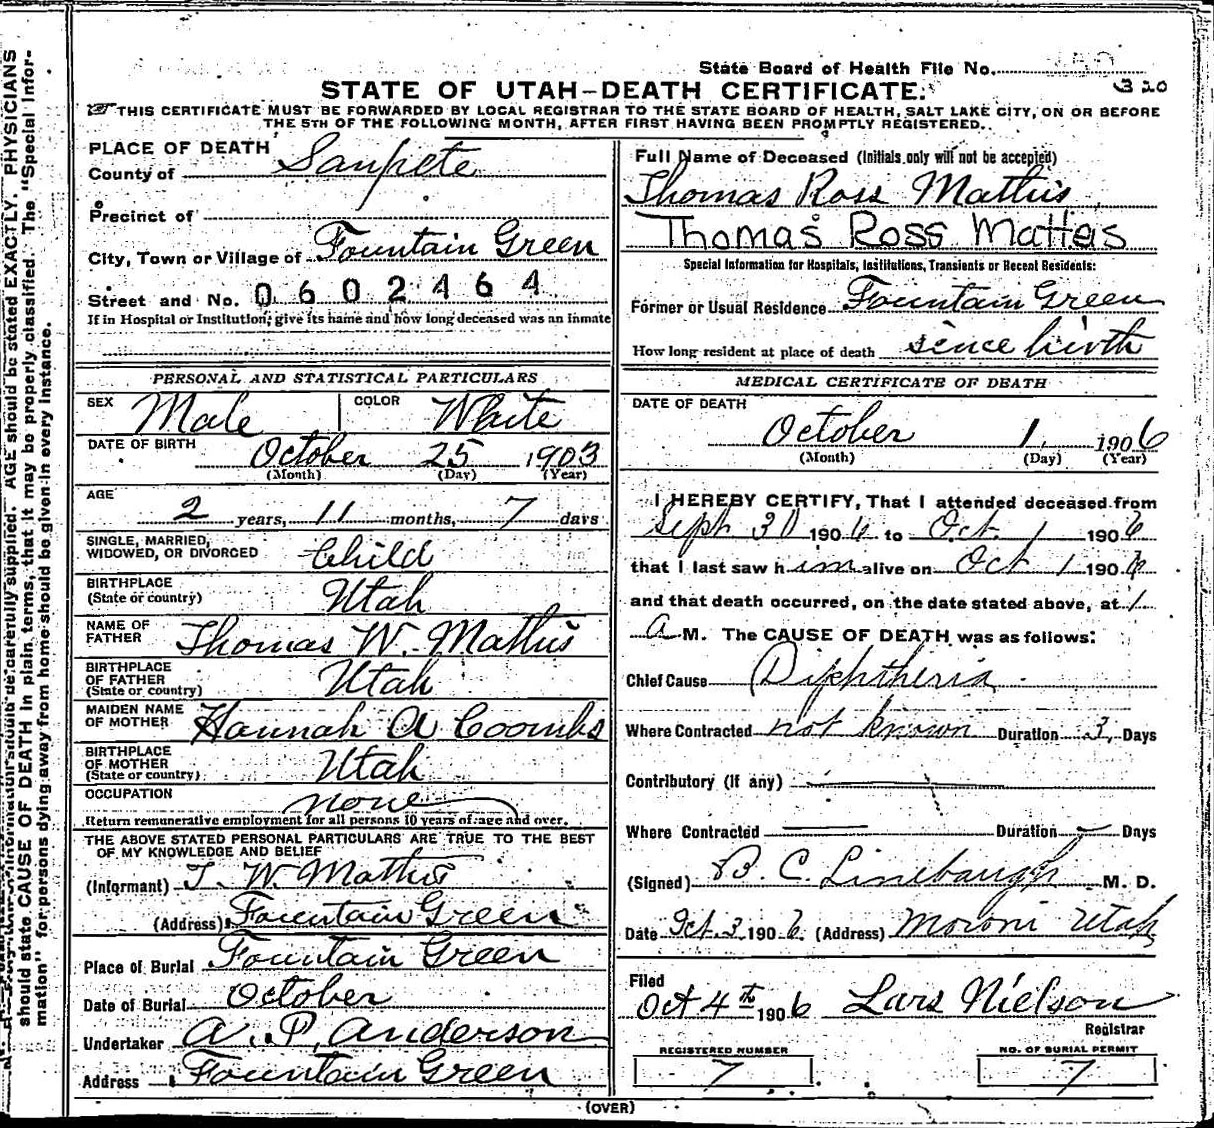 State Board of Health File No.
320
STATE OF UTAH—DEATH CERTIFICATE.
THIS CERTIFICATE MUST BE FORWARDED BY LOCAL REGISTRAR TO THE STATE BOARD OF HEALTH, SALT LAKE CITY, ON OR BEFORE
THE 5TH OF THE FOLLOWING MONTH, AFTER FIRST HAVING BEEN PROMPTLY REGISTERED.
PLACE OF DEATH
County of Sanpete
Precinct of
City, Town or Village of Fountain Green
Street and No. 0602464
If in Hospital or Institution, give its name and how long deceased was an inmate
PERSONAL AND STATISTICAL PARTICULARS
SEX Male COLOR White
DATE OF BIRTH
October 25 1903
(Month) (Day) (Year)
AGE
2 years, 11 months, 7 days
SINGLE, MARRIED,
WIDOWED, OR DIVORCED Child
BIRTHPLACE
(State or country) Utah
NAME OF
FATHER Thomas W. Mathis
BIRTHPLACE
OF FATHER
(State or country) Utah
MAIDEN NAME
OF MOTHER Hannah A Coombs
BIRTHPLACE
OF MOTHER
(State or country) Utah
OCCUPATION none
Return remunerative employment for all persons 10 years of age and over.
THE ABOVE STATED PERSONAL PARTICULARS ARE TRUE TO THE BEST
OF MY KNOWLEDGE AND BELIEF
(Informant) T. W. Mathis
(Address) Fountain Green
Place of Burial Fountain Green
Date of Burial October
Undertaker A. P. Anderson
Address Fountain Green
Full Name of Deceased (Initials only will not be accepted)
Thomas Ross Mathis
Thomas Ross Matteis
Special Information for Hospitals, Institutions, Transients or Recent Residents:
Former or Usual Residence Fountain Green
How long resident at place of death since birth
MEDICAL CERTIFICATE OF DEATH
DATE OF DEATH
October 1, 1906
(Month) (Day) (Year)
I HEREBY CERTIFY, That I attended deceased from
Sept 30 1906 to Oct. 1 1906
that I last saw him alive on Oct 1 1906
and that death occurred, on the date stated above, at 1
A M. The CAUSE OF DEATH was as follows:
Chief Cause Diphtheria
Where Contracted not known Duration 3 Days
Contributory (if any)
Where Contracted Duration Days
(Signed) B. C. Linebaugh M. D.
Date Oct. 3 1906. (Address) Moroni Utah
Filed
Oct 4th 1906 Lars Nielson
Registrar
REGISTERED NUMBER
7
NO. OF BURIAL PERMIT
7
(OVER)
should be carefully supplied. AGE should be stated EXACTLY. PHYSICIANS
should state CAUSE OF DEATH in plain terms, that it may be properly classified. The "Special Infor-
mation" for persons dying away from home should be given in every instance.